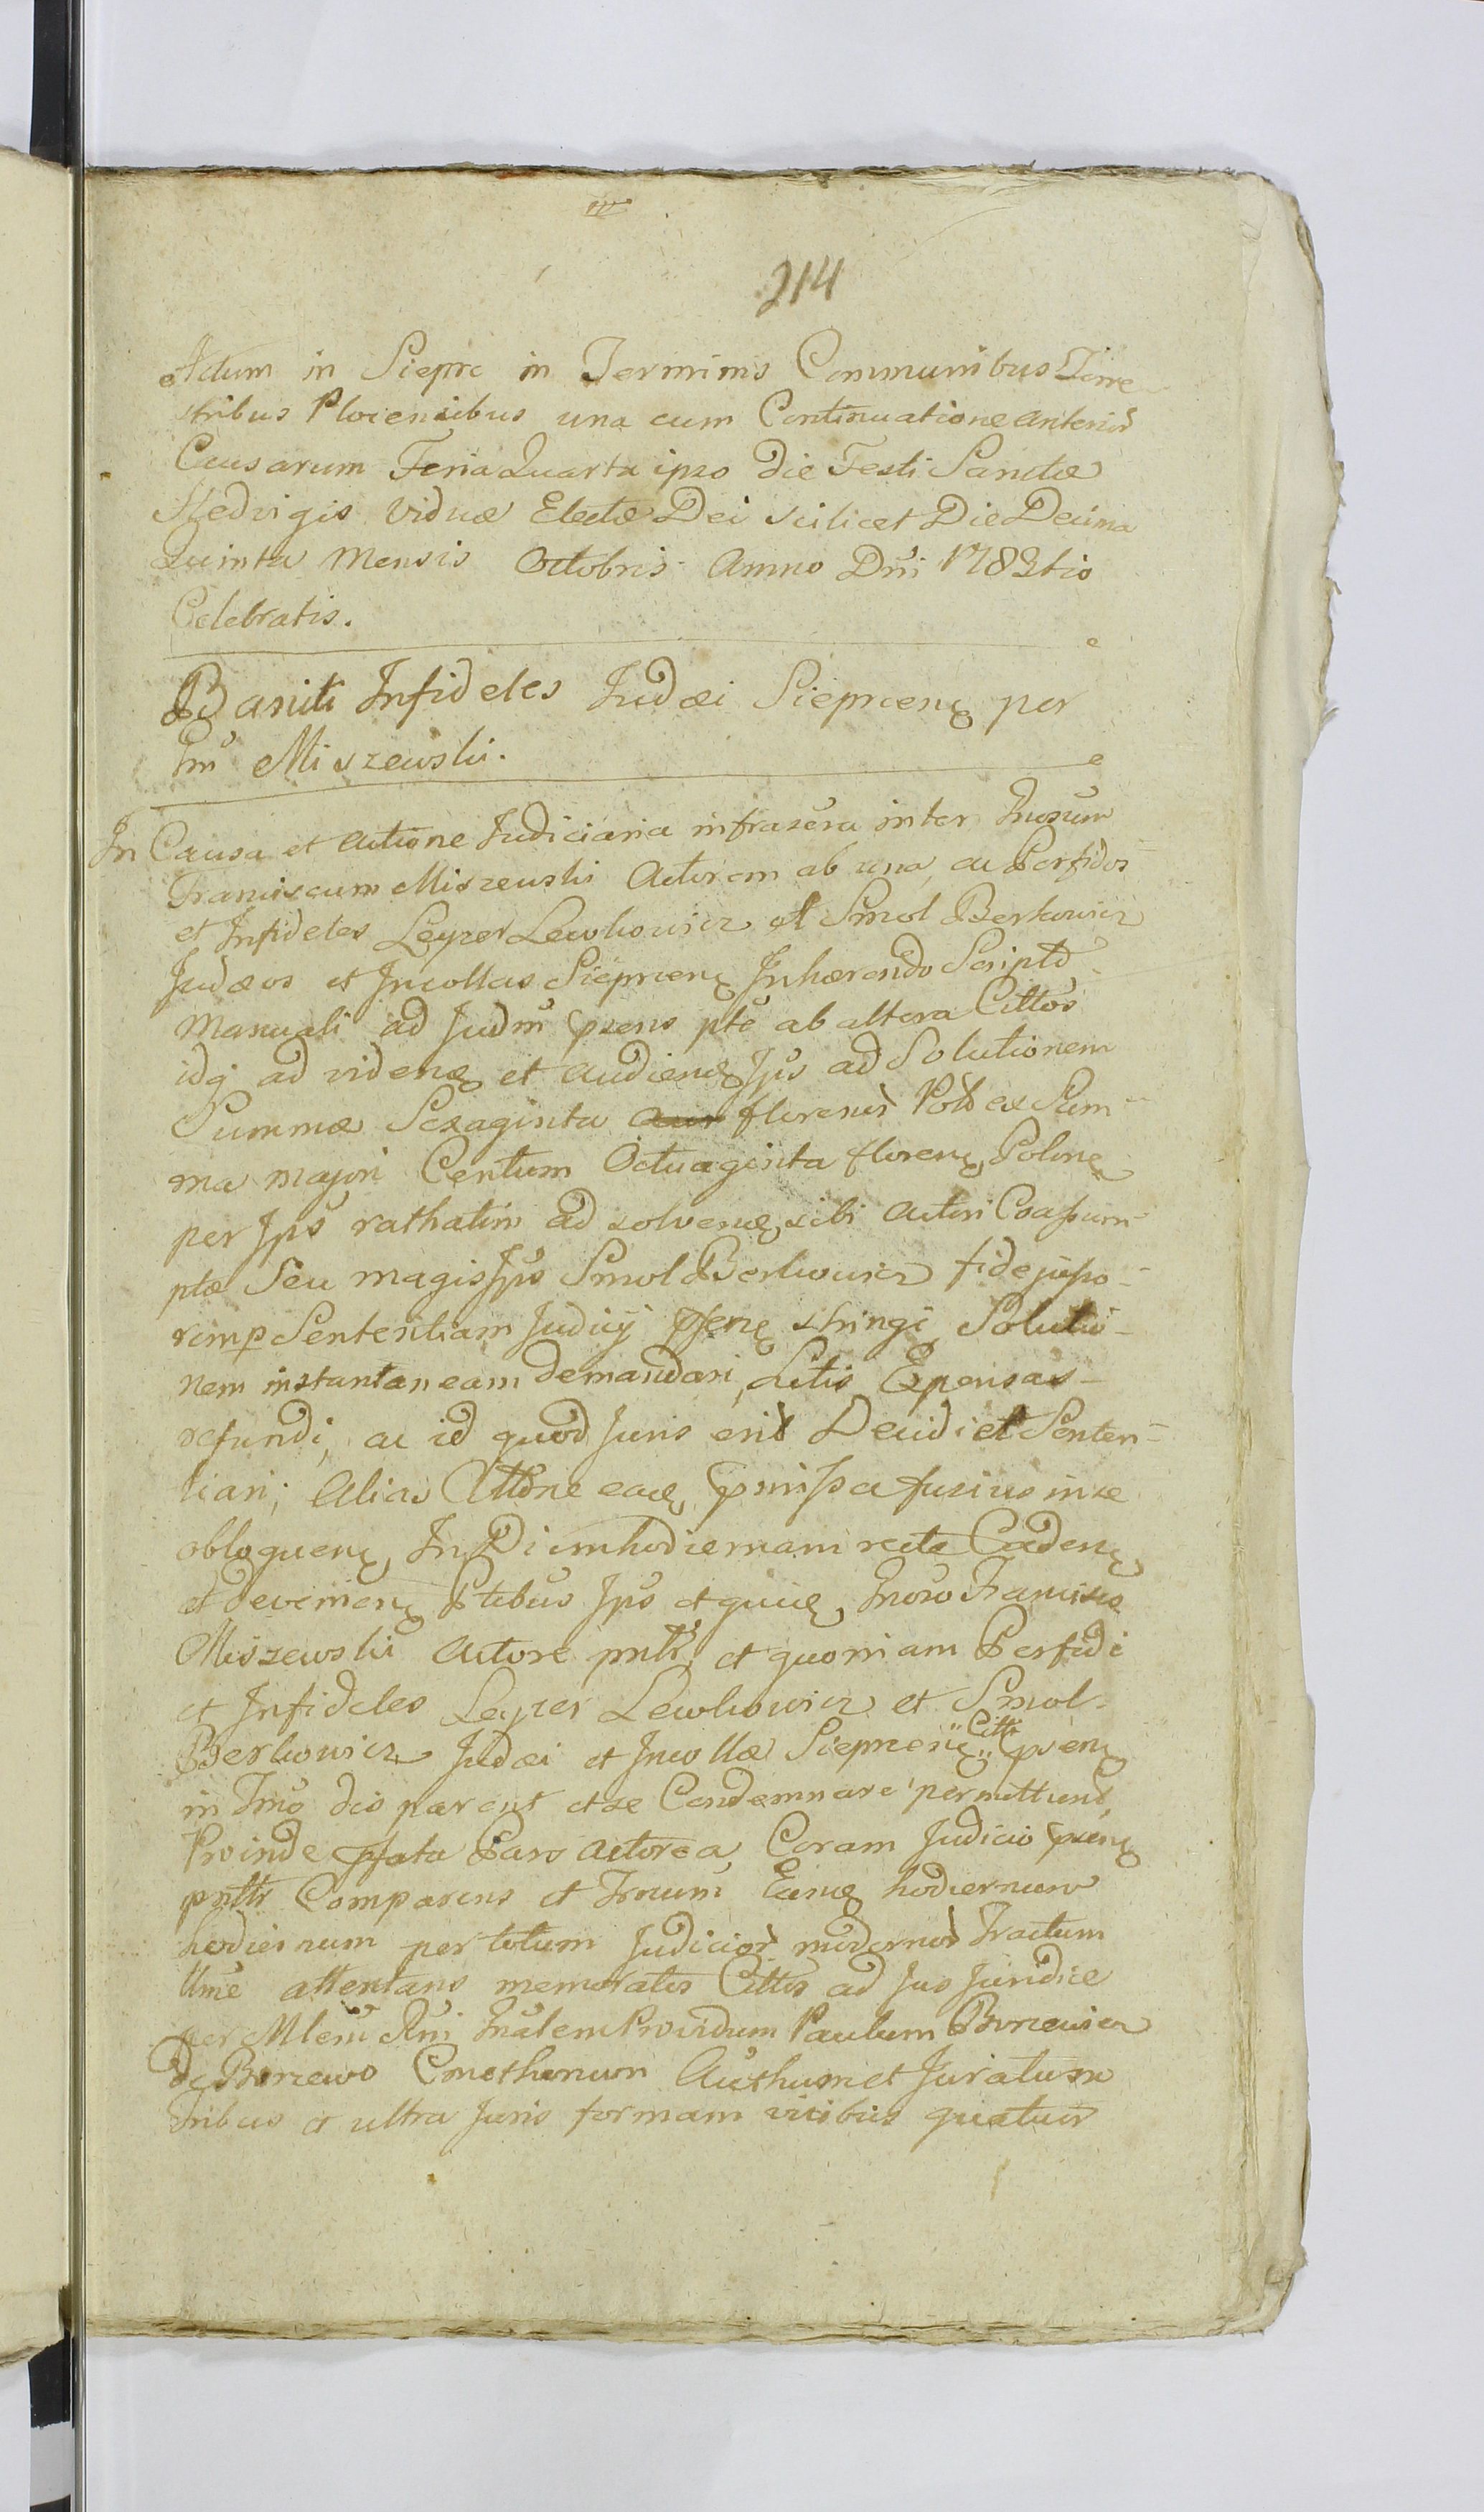 214
Actum in Sieprc in Terminis Communibus Terre
stribus Plocensibus una cum Continuatione anterior
Causarum Feria Quarta ipso Die Festi Sanctæ
Hedvigis Viduæ Electæ Dei scilicet Die Decima
Quinta Mensis Octobris Anno Dni 1783tio
Celebratis.
Baniti Infideles Judæi Sieprcen per
Miszewski.
In Causa et Actione Judiciaria infrascra inter Gnosum
Franciscum Miszewski Actorem ab una, ac Perfidos
et Infideles Leyzer Lewkowicz et Smol Berkowicz
Judæos et Incollas Sieprcen Inhærendo Scripto
Manuali ad Judm præns pte ab altera Cittos
idq ad videne et audiene Ips ad Solutionem
Summæ Sexaginta florenor Pol ex Sum
ma majori Centum Octuaginta floren Polne
per Ips rathatim ad solvene sibi Actori Coassum
ptæ Seu magis Ips Smol Berkowicz fidejusso
Sententiam Judicij stringi, Solutio
nem instantaneam demandari, Litis Expensas
refundi, ac id quod Juris erit Decidi et Senten
tiari; Alias Cittone eade, pmissa fusius in se
obloquen, In Diem hodiernam recte Caden
et devenien Ptibus Ips et quide, Gnoso Francisco
Miszewski Actore pntr, et quoniam Perfidi
et Infideles Leyzer Lewkowicz et Smol
Berkowicz Judæi et Incollæ Sieprcen Citti præn
in Tmo dis parent et se Condemnare permittunt,
Proinde pfata Pars Actorea, Coram Judicio præn
pntr Comparens et Trnum hodiernum
hodiernum per totum Judicior modernor Tractum
ttme attentans memoratos Cittos ad Jus Juridice
per Mlem Rni Gnalem Providum Paulum Borzewicz
de Borzewo Cmethonum Authum et Juratum
Tribus et ultra Juris formam vicibus quatuor